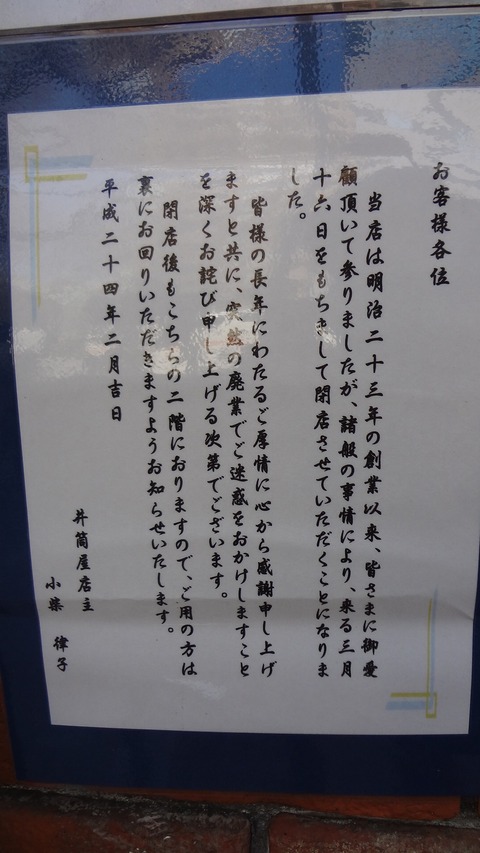 お客様各位
当店は明治二十三年の創業以来、皆さまに御愛
顧頂いて参りましたが、諸般の事情により、来る三月
十六日をもちまして閉店させていただくことになりま
した。
皆様の長年にわたるご厚情に心から感謝申し上げ
ますと共に、突然の廃業でご迷惑をおかけしますこと
を深くお詫び申し上げる次第でございます。
閉店後もこちらの二階におりますので、ご用の方は
裏にお回りいただきますようお知らせいたします。
平成二十四年二月吉日
井筒屋店主
小柴 律子